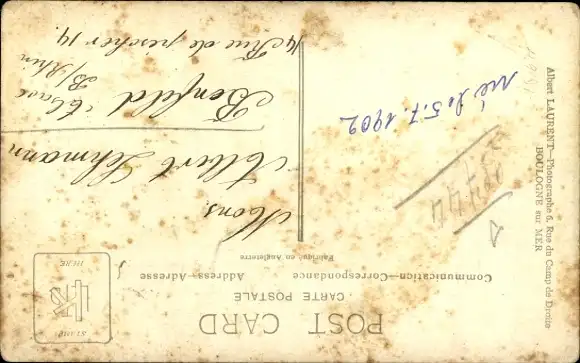 POST CARD
CARTE POSTALE
Communication—Correspondance
Address—Adresse
Fabriqué en Angleterre
STAMP
HERE
Mons.
Albert Lehmann
Benfeld
Elsace
B/Rhin
14 Rue de rescher 14.
né le 5.7.1902
Albert LAURENT—Photographe 6, Rue du Camp de Droite
BOULOGNE sur MER